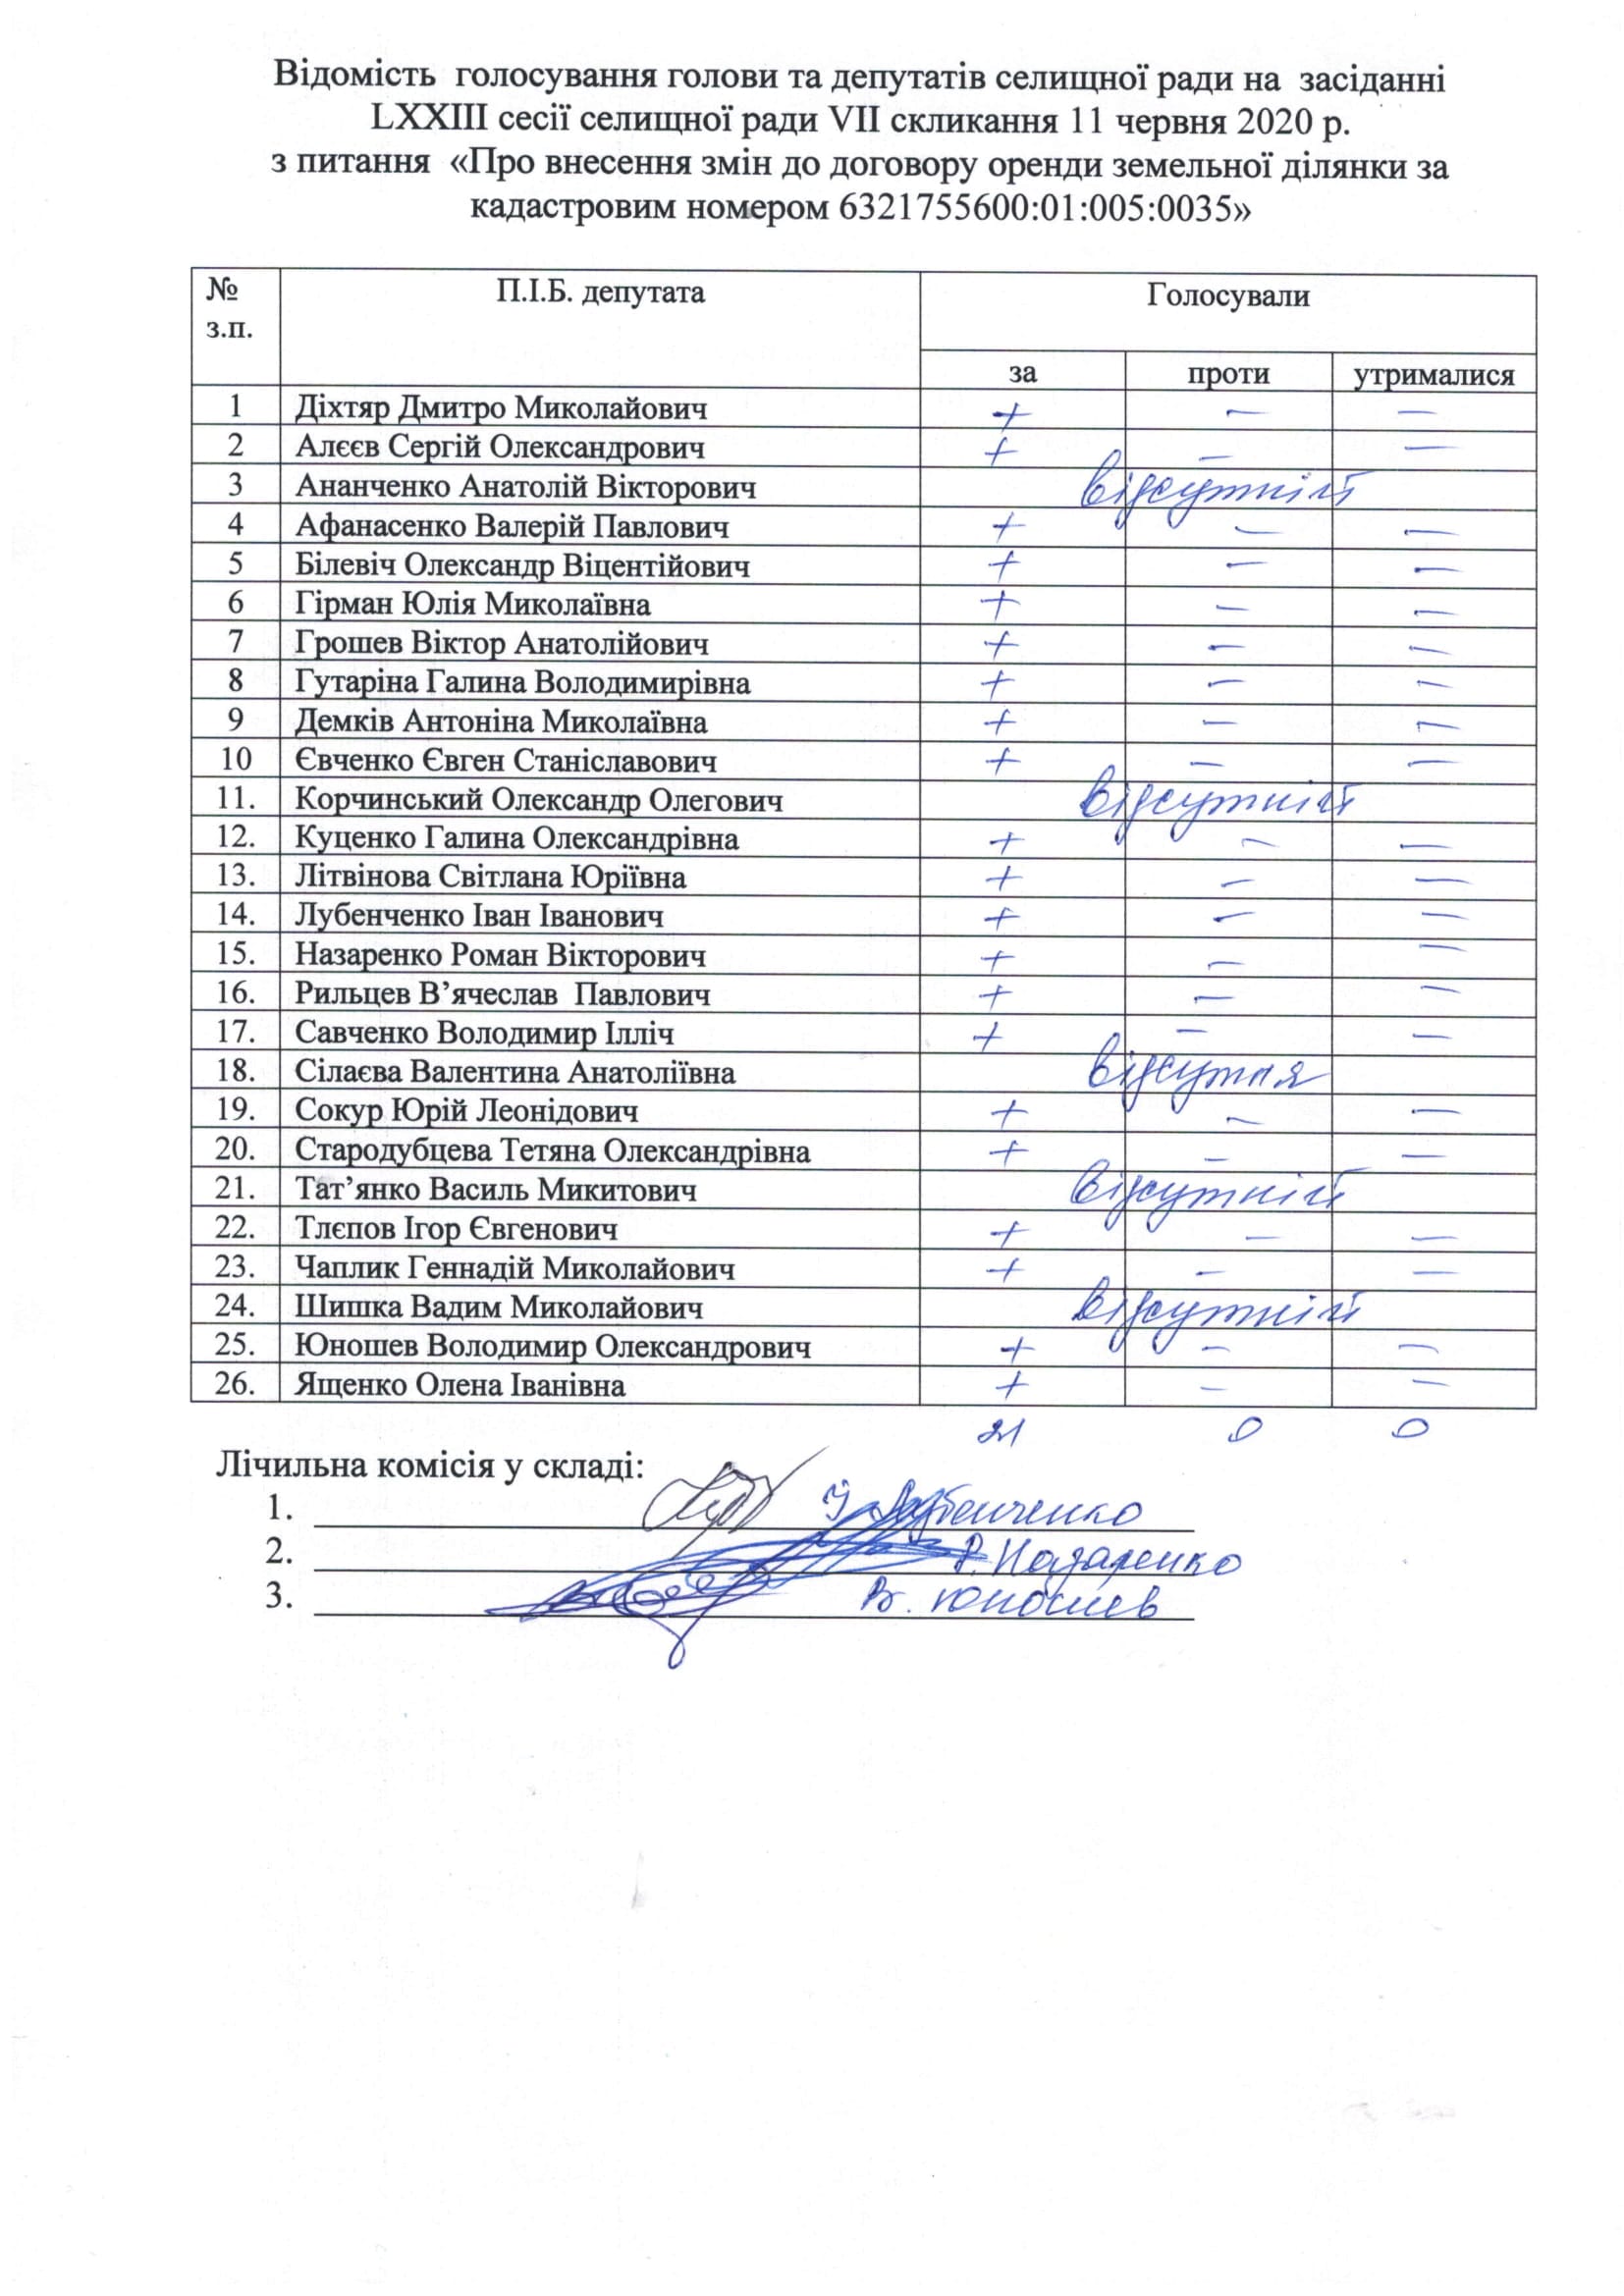 Відомість голосування голови та депутатів селищної ради на засіданні
LXXIII сесії селищної ради VII скликання 11 червня 2020 р.
з питання «Про внесення змін до договору оренди земельної ділянки за
кадастровим номером 6321755600:01:005:0035»
№ з.п. П.І.Б. депутата Голосували
за проти утрималися
1 Діхтяр Дмитро Миколайович + – –
2 Алєєв Сергій Олександрович + – –
3 Ананченко Анатолій Вікторович відсутній
4 Афанасенко Валерій Павлович + – –
5 Білевіч Олександр Віцентійович + – –
6 Гірман Юлія Миколаївна + – –
7 Грошев Віктор Анатолійович + – –
8 Гутаріна Галина Володимирівна + – –
9 Демків Антоніна Миколаївна + – –
10 Євченко Євген Станіславович + – –
11. Корчинський Олександр Олегович відсутній
12. Куценко Галина Олександрівна + – –
13. Літвінова Світлана Юріївна + – –
14. Лубенченко Іван Іванович + – –
15. Назаренко Роман Вікторович + – –
16. Рильцев В’ячеслав Павлович + – –
17. Савченко Володимир Ілліч + – –
18. Сілаєва Валентина Анатоліївна відсутня
19. Сокур Юрій Леонідович + – –
20. Стародубцева Тетяна Олександрівна + – –
21. Тат’янко Василь Микитович відсутній
22. Тлєпов Ігор Євгенович + – –
23. Чаплик Геннадій Миколайович + – –
24. Шишка Вадим Миколайович відсутній
25. Юношев Володимир Олександрович + – –
26. Ященко Олена Іванівна + – –
21 0 0
Лічильна комісія у складі:
1. І Лубенченко
2. Р. Назаренко
3. В. Юношев